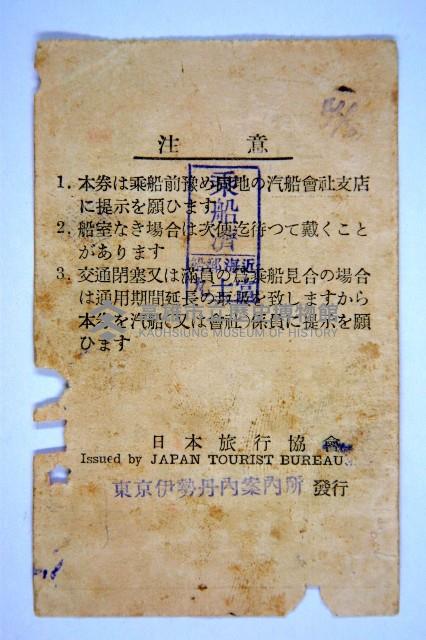 注意
1. 本券は乗船前豫め當地の汽船會社支店
に提示を願ひます
2. 船室なき場合は次便迄待つて戴くこと
があります
3. 交通閉塞又は滿員の爲乗船見合の場合
は通用期間延長の取扱を致しますから
本券を汽船(又は會社)係員に提示を願
ひます
乗船濟
近海郵船
富士丸
高雄市立歷史博物館
KAOHSIUNG MUSEUM OF HISTORY
日本旅行協會
Issued by JAPAN TOURIST BUREAU.
東京伊勢丹內案內所 發行